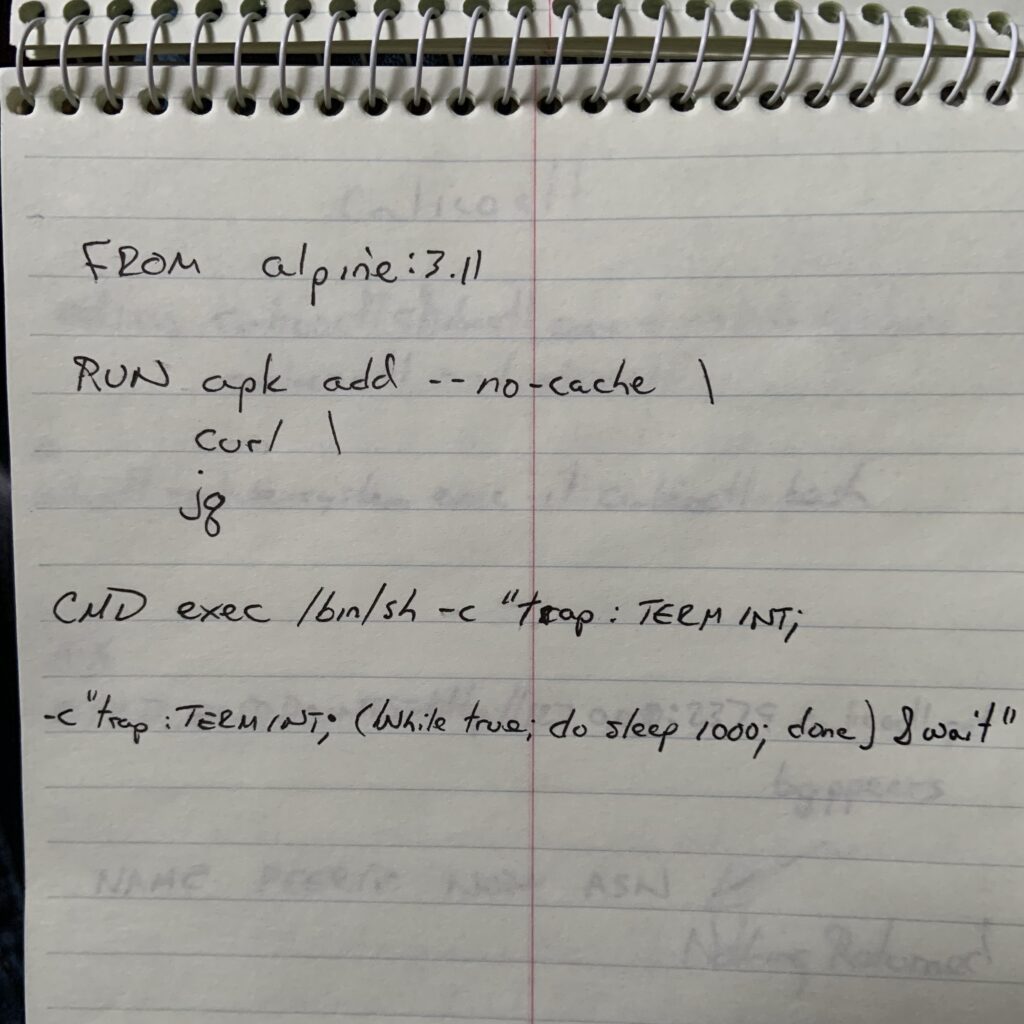 FROM alpine:3.11
RUN apk add --no-cache \
curl \
jq
CMD exec /bin/sh -c "trap : TERM INT;
-c "trap : TERM INT; (While true; do sleep 1000; done) & wait"
bgppeers
NAME ASN
Nothing Returned